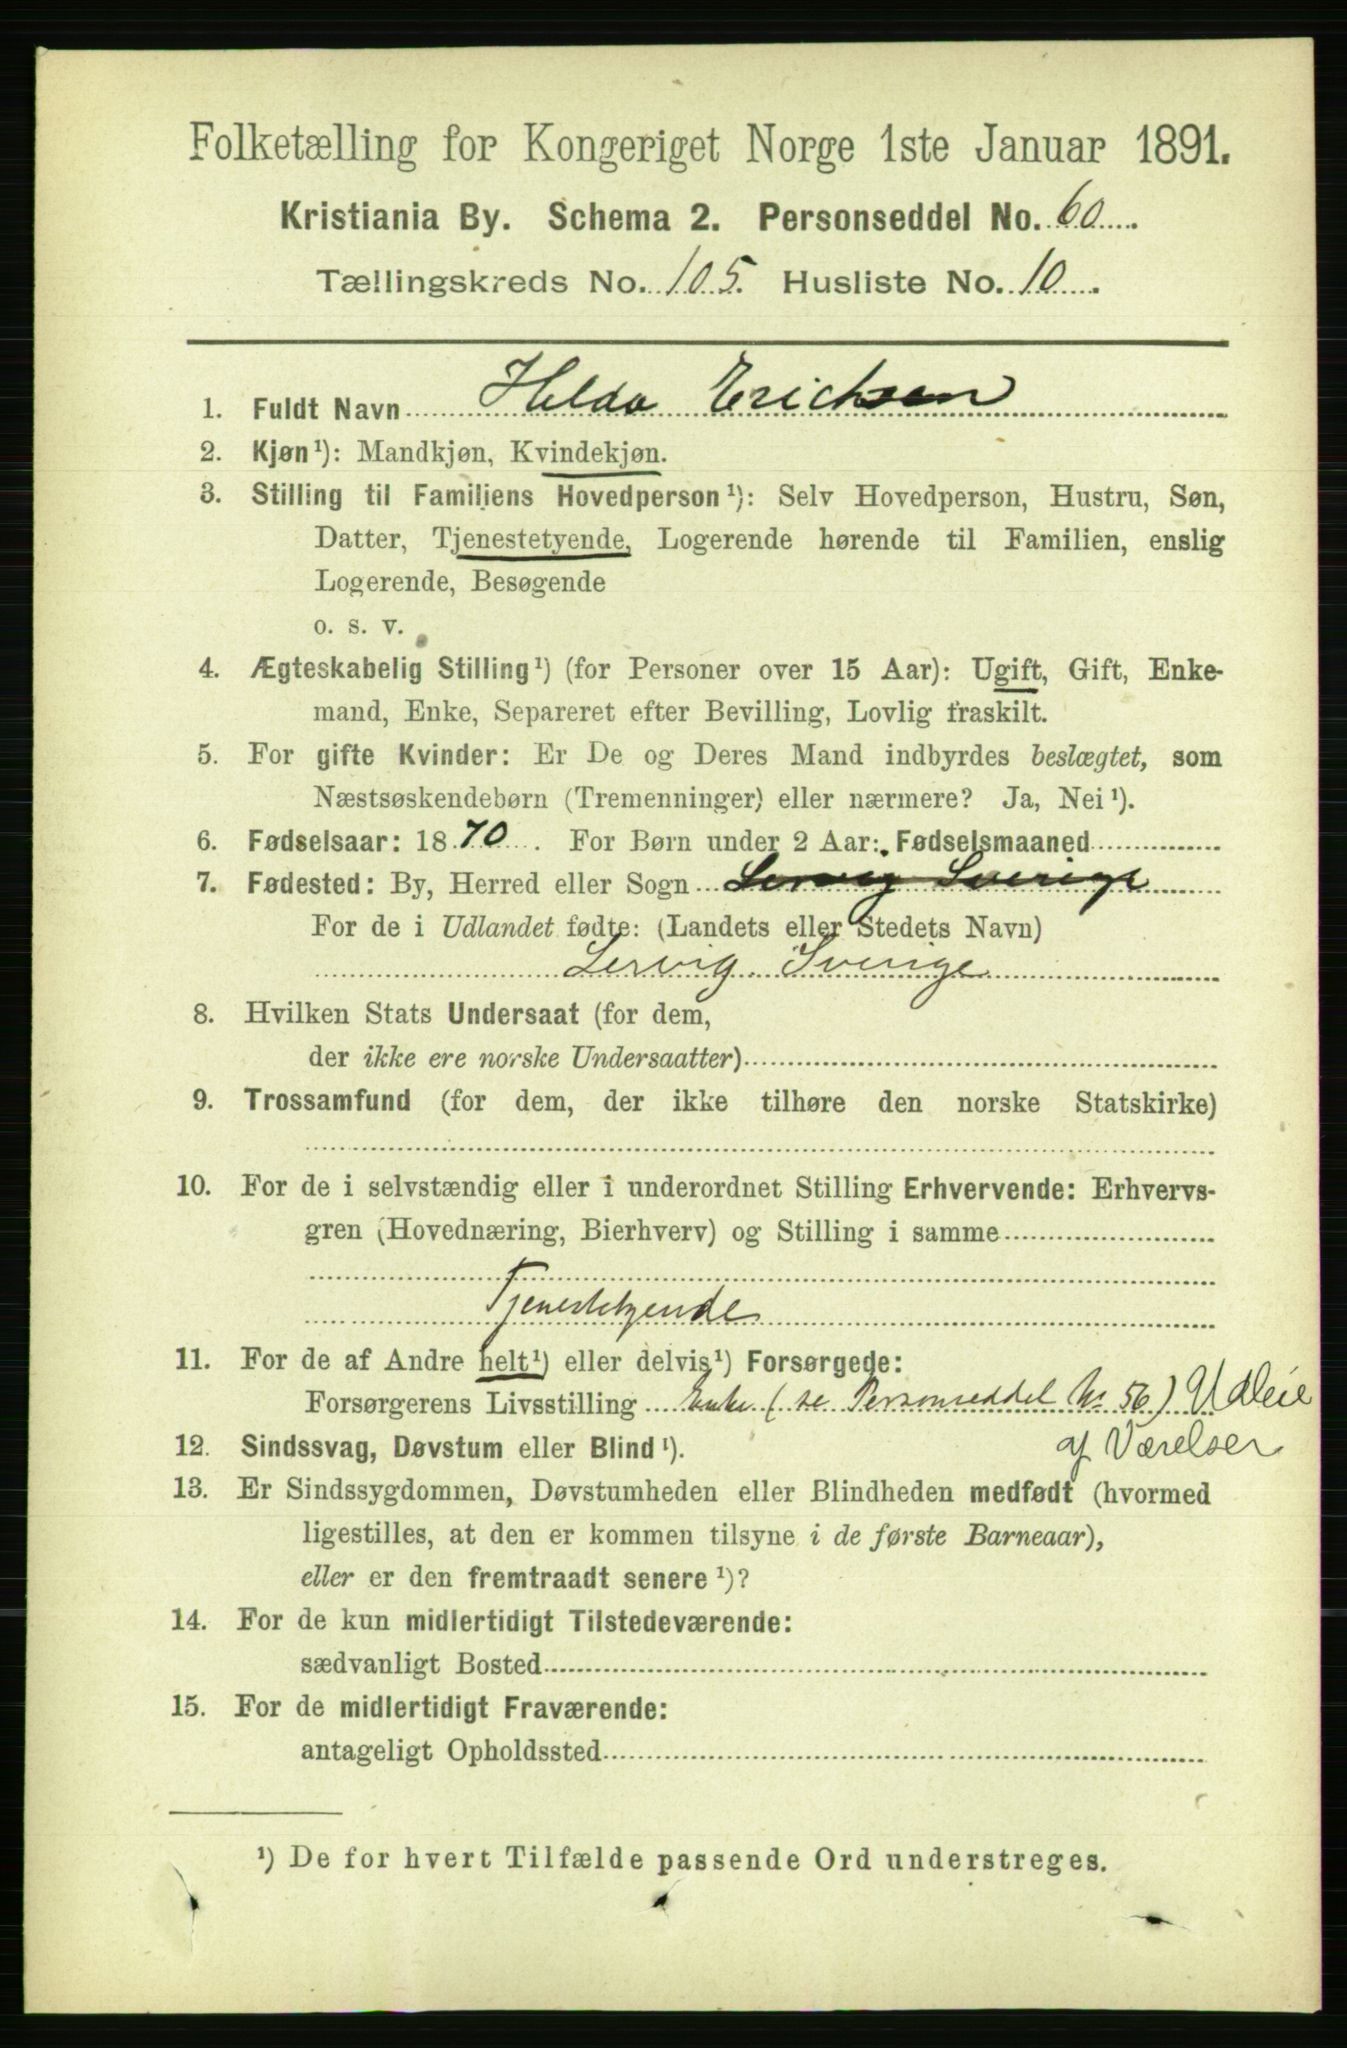 Folketælling for Kongeriget Norge 1ste Januar 1891.
Kristiania By. Schema 2. Personseddel No. 60
Tællingskreds No. 105. Husliste No. 10
1. Fuldt Navn Helda Ericksen
2. Kjøn¹): Mandkjøn, Kvindekjøn.
3. Stilling til Familiens Hovedperson¹): Selv Hovedperson, Hustru, Søn,
Datter, Tjenestetyende, Logerende hørende til Familien, enslig
Logerende, Besøgende
o. s. v.
4. Ægteskabelig Stilling¹) (for Personer over 15 Aar): Ugift, Gift, Enke-
mand, Enke, Separeret efter Bevilling, Lovlig fraskilt.
5. For gifte Kvinder: Er De og Deres Mand indbyrdes beslægtet, som
Næstsøskendebørn (Tremenninger) eller nærmere? Ja, Nei¹).
6. Fødselsaar: 1870. For Børn under 2 Aar: Fødselsmaaned
7. Fødested: By, Herred eller Sogn Lervig Sverige
For de i Udlandet fødte: (Landets eller Stedets Navn)
Lervig Sverige
8. Hvilken Stats Undersaat (for dem,
der ikke ere norske Undersaatter)
9. Trossamfund (for dem, der ikke tilhøre den norske Statskirke)
10. For de i selvstændig eller i underordnet Stilling Erhvervende: Erhvervs-
gren (Hovednæring, Bierhverv) og Stilling i samme
Tjenestetyende
11. For de af Andre helt¹) eller delvis¹) Forsørgede:
Forsørgerens Livsstilling Enke (se Personseddel No 56) Udleie
af Værelser
12. Sindssvag, Døvstum eller Blind¹).
13. Er Sindssygdommen, Døvstumheden eller Blindheden medfødt (hvormed
ligestilles, at den er kommen tilsyne i de første Barneaar),
eller er den fremtraadt senere¹)?
14. For de kun midlertidigt Tilstedeværende:
sædvanligt Bosted
15. For de midlertidigt Fraværende:
antageligt Opholdssted
¹) De for hvert Tilfælde passende Ord understreges.